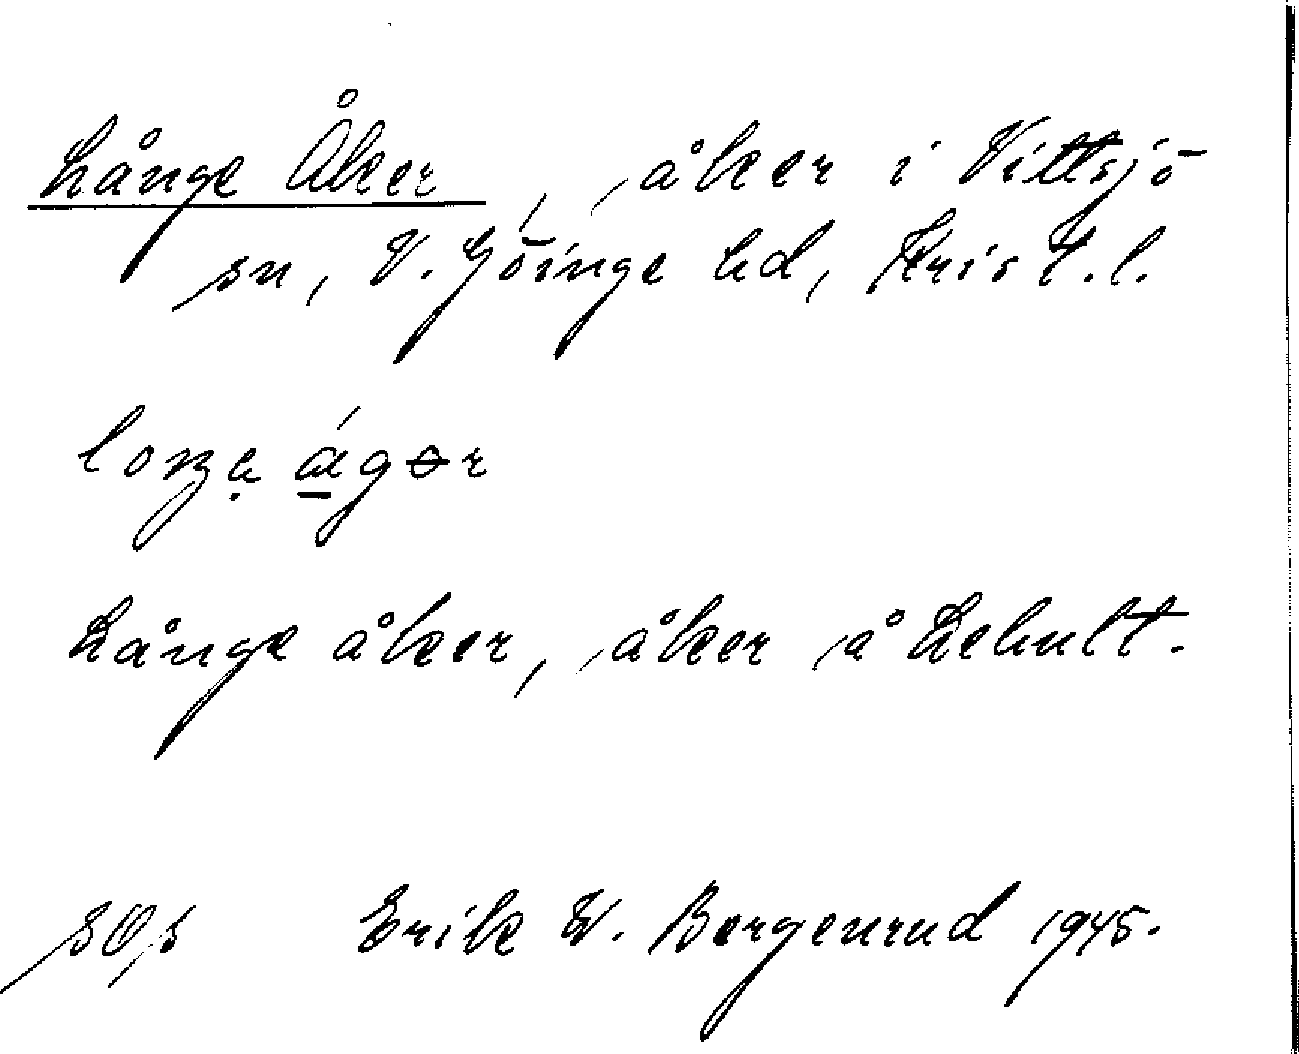 Långe Åker, åker i Vittsjö
sn, V. Göinge hd, Krist. l.
loŋa ágər
Långe åker, åker å Lehult.
Erik W. Bergenrud 1945.